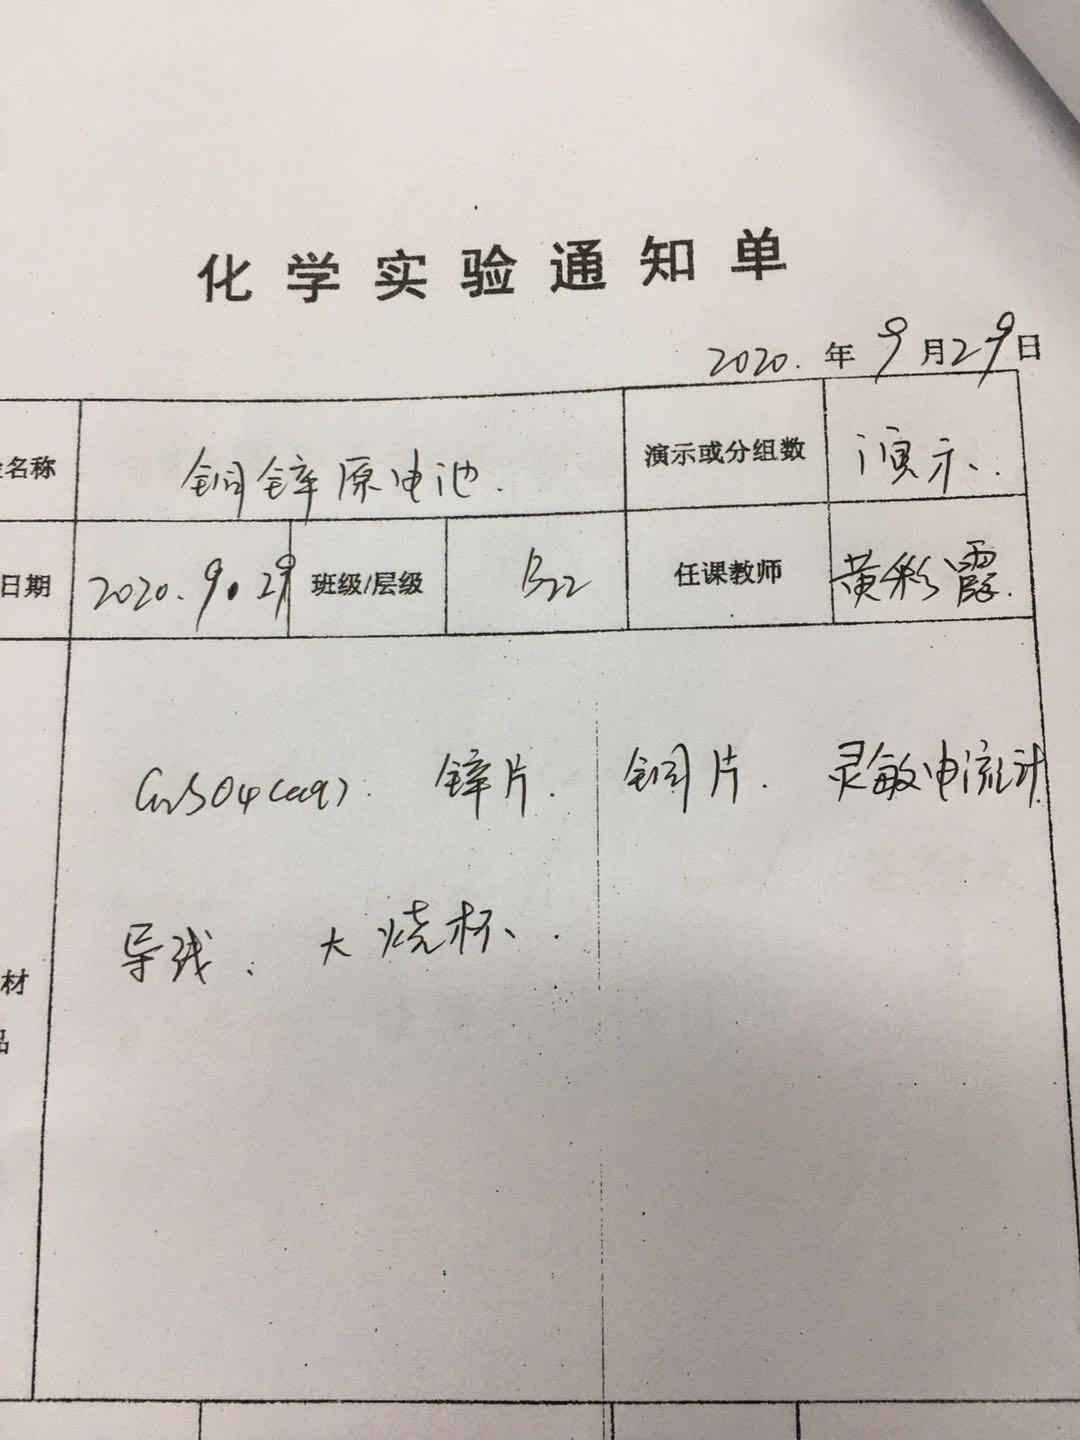 化学实验通知单
2020. 年 9月29日
名称 铜锌原电池. 演示或分组数 演示.
日期 2020.9.29 班级/层级 B22 任课教师 黄彩霞.
CuSO4(aq). 锌片. 铜片. 灵敏电流计
导线. 大烧杯、.
材
品